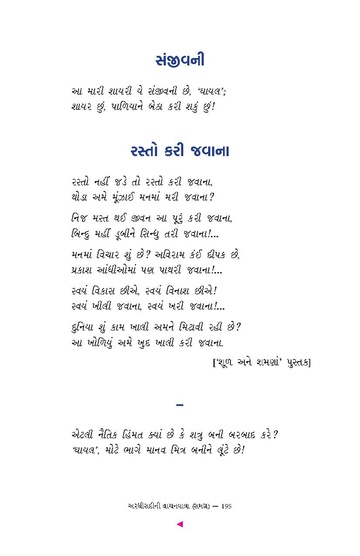 સંજીવની
આ મારી શાયરી યે સંજીવની છે, ‘ઘાયલ’;
શાયર છું, પાળિયાને બેઠા કરી શકું છું!
રસ્તો કરી જવાના
રસ્તો નહીં જડે તો રસ્તો કરી જવાના,
થોડા અમે મૂંઝાઈ મનમાં મરી જવાના?
નિજ મસ્ત થઈ જીવન આ પૂરું કરી જવાના,
બિન્દુ મહીં ડૂબીને સિન્ધુ તરી જવાના!...
મનમાં વિચાર શું છે? અવિરામ કંઈ દીપક છે,
પ્રકાશ આંધીઓમાં પણ પાથરી જવાના!...
સ્વયં વિકાસ છીએ, સ્વયં વિનાશ છીએ!
સ્વયં ખીલી જવાના, સ્વયં ખરી જવાના!...
દુનિયા શું કામ ખાલી અમને મિટાવી રહી છે?
આ ખોળિયું અમે ખુદ ખાલી કરી જવાના.
[‘શૂળ અને શમણાં’ પુસ્તક]
એટલી નૈતિક હિંમત ક્યાં છે કે શત્રુ બની બરબાદ કરે?
‘ઘાયલ’, મોટે ભાગે માનવ મિત્ર બનીને લૂંટે છે!
અરધીસદીની વાચનયાત્રા (સમગ્ર) — 195